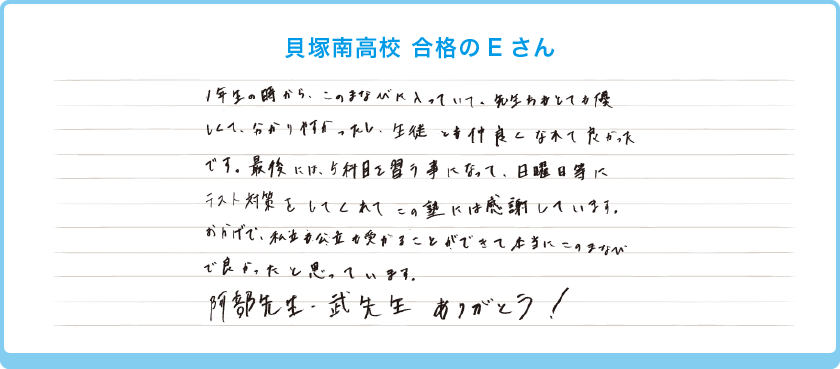 貝塚南高校 合格のEさん
1年生の時から、このまなびに入っていて、先生方もとても優
しくて、分かりやすかったし、生徒とも仲良くなれて良かった
です。最後には、5科目を習う事になって、日曜日等に
テスト対策をしてくれてこの塾には感謝しています。
おかげで、私立も公立も受かることができて本当にこのまなび
で良かったと思っています。
阿部先生・武先生 ありがとう!